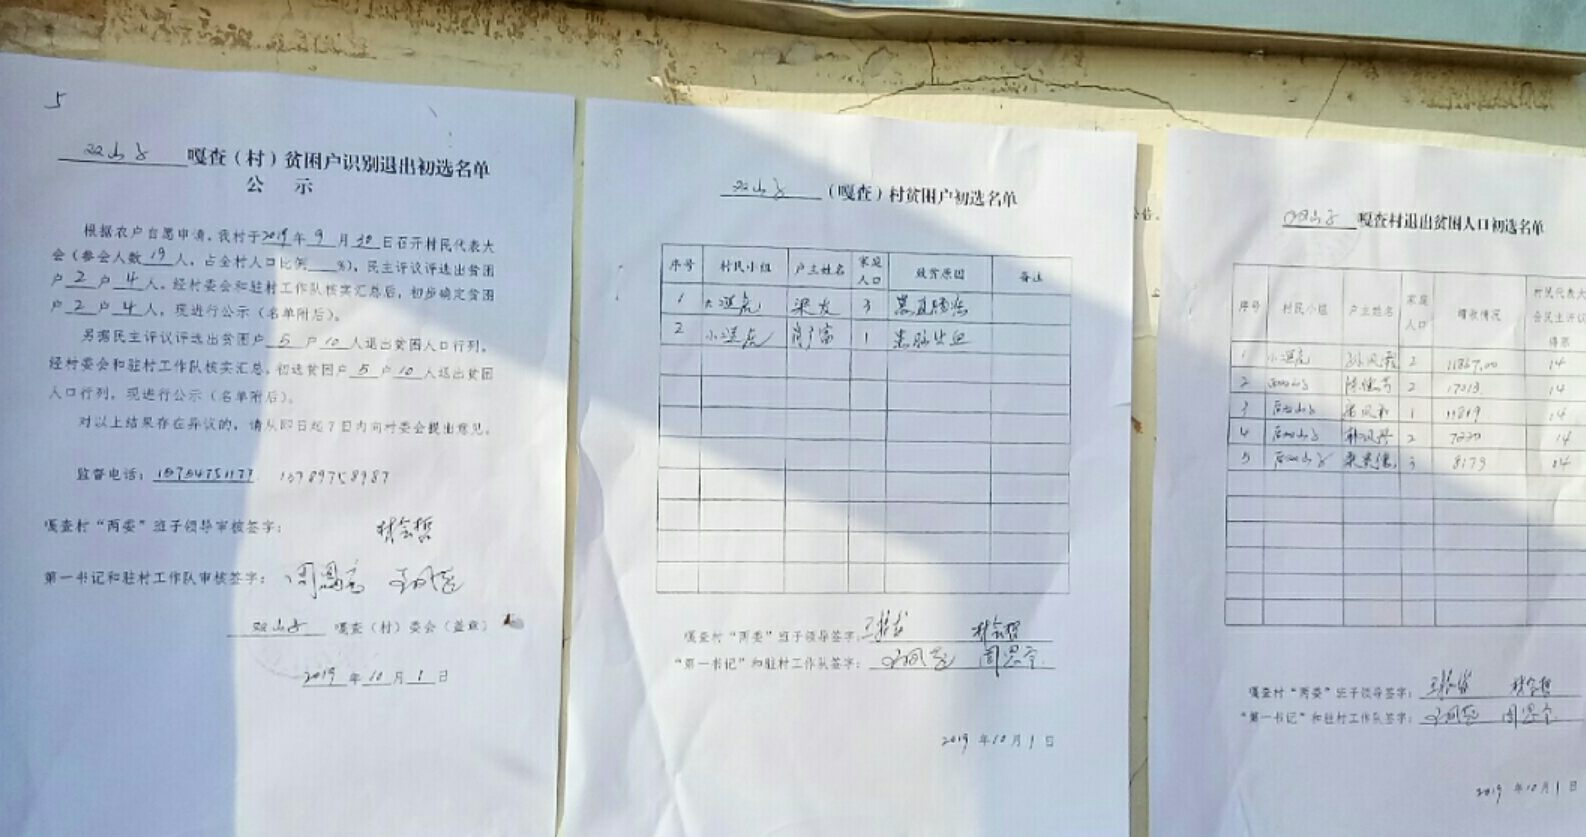 5
双山子 嘎查（村）贫困户识别退出初选名单
公 示
根据农户自愿申请，我村于2019年9月30日召开村民代表大
会（参会人数19人，占全村人口比例 %），民主评议评选出贫困
户2户4人，经村委会和驻村工作队核实汇总后，初步确定贫困
户2户4人，现进行公示（名单附后）。
另据民主评议评选出贫困户5户10人退出贫困人口行列，
经村委会和驻村工作队核实汇总，初选贫困户5户10人退出贫困
人口行列，现进行公示（名单附后）。
对以上结果存在异议的，请从即日起7日内向村委会提出意见。
监督电话： 13789758987
嘎查村“两委”班子领导审核签字： 林会哲
第一书记和驻村工作队审核签字：
双山子 嘎查（村）委会（盖章）
2019年10月1日
双山子 （嘎查）村贫困户初选名单
序号 村民小组 户主姓名 家庭人口 致贫原因 备注
1 梁发 3 患直肠癌
2 1 患脑出血
嘎查村“两委”班子领导签字： 林会哲
“第一书记”和驻村工作队签字：
2019年10月1日
双山子 嘎查村退出贫困人口初选名单
序号 村民小组 户主姓名 家庭人口 增收情况 村民代表大会民主评议得票
1 2 11867.00 14
2 2 17213 14
3 1 11819 14
4 2 14
5 3 8179 14
嘎查村“两委”班子领导签字： 林会哲
“第一书记”和驻村工作队签字：
2019年10月1日